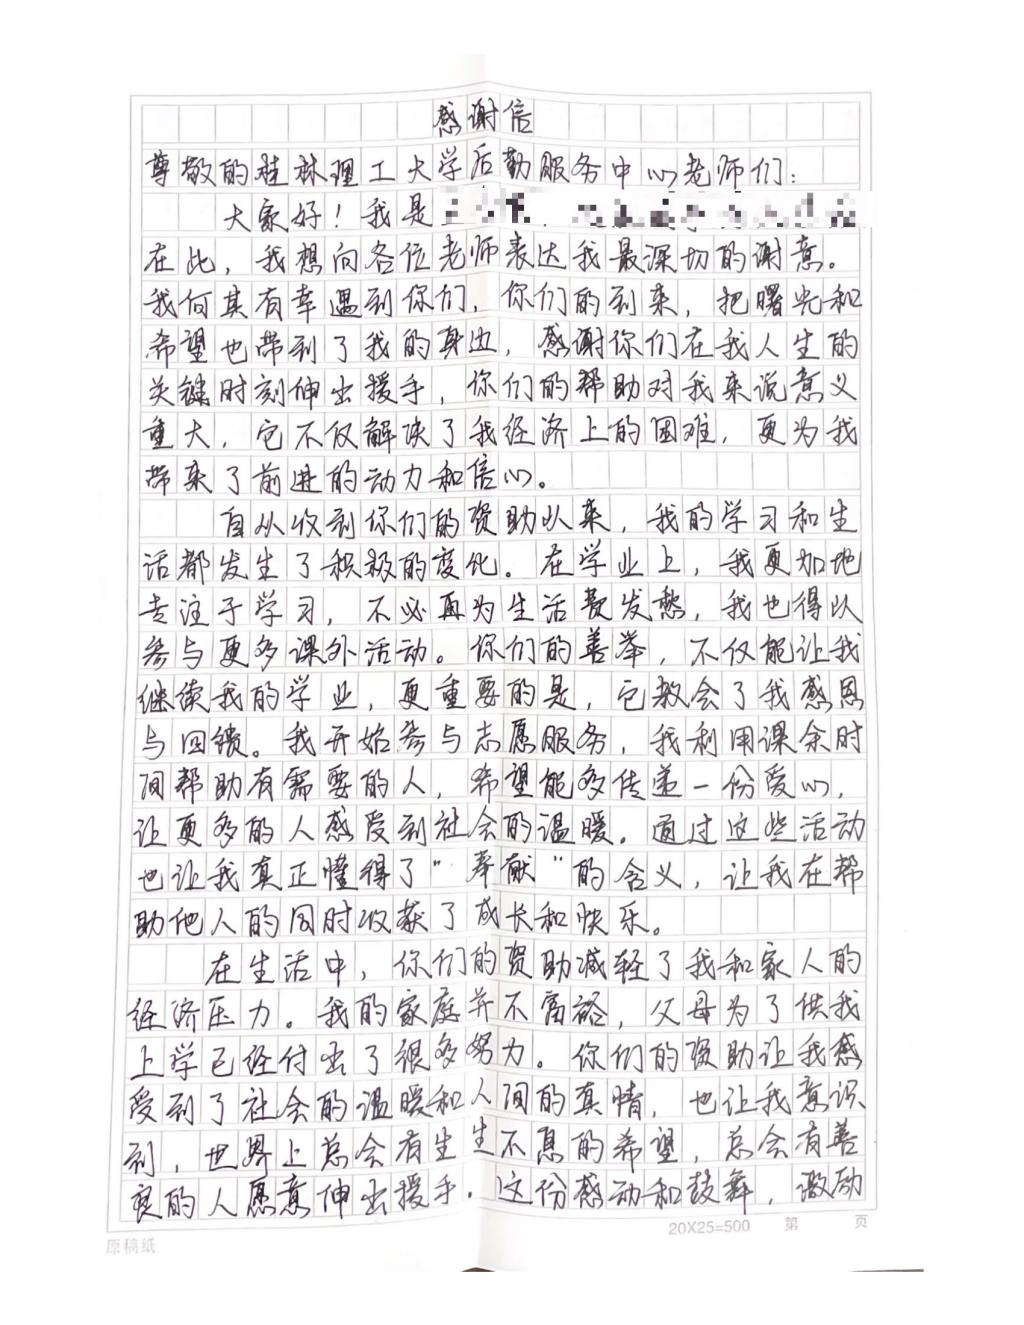 感谢信
尊敬的桂林理工大学后勤服务中心老师们：
大家好！我是
在此，我想向各位老师表达我最深切的谢意。
我何其有幸遇到你们，你们的到来，把曙光和
希望也带到了我的身边，感谢你们在我人生的
关键时刻伸出援手，你们的帮助对我来说意义
重大，它不仅解决了我经济上的困难，更为我
带来了前进的动力和信心。
自从收到你们的资助以来，我的学习和生
活都发生了积极的变化。在学业上，我更加地
专注于学习，不必再为生活费发愁，我也得以
参与更多课外活动。你们的善举，不仅能让我
继续我的学业，更重要的是，它教会了我感恩
与回馈。我开始参与志愿服务，我利用课余时
间帮助有需要的人，希望能多传递一份爱心，
让更多的人感受到社会的温暖。通过这些活动
也让我真正懂得了"奉献"的含义，让我在帮
助他人的同时收获了成长和快乐。
在生活中，你们的资助减轻了我和家人的
经济压力。我的家庭并不富裕，父母为了供我
上学已经付出了很多努力。你们的资助让我感
受到了社会的温暖和人间的真情，也让我意识
到，世界上总会有生生不息的希望，总会有善
良的人愿意伸出援手。这份感动和鼓舞，激励
20X25=500 第 页
原稿纸